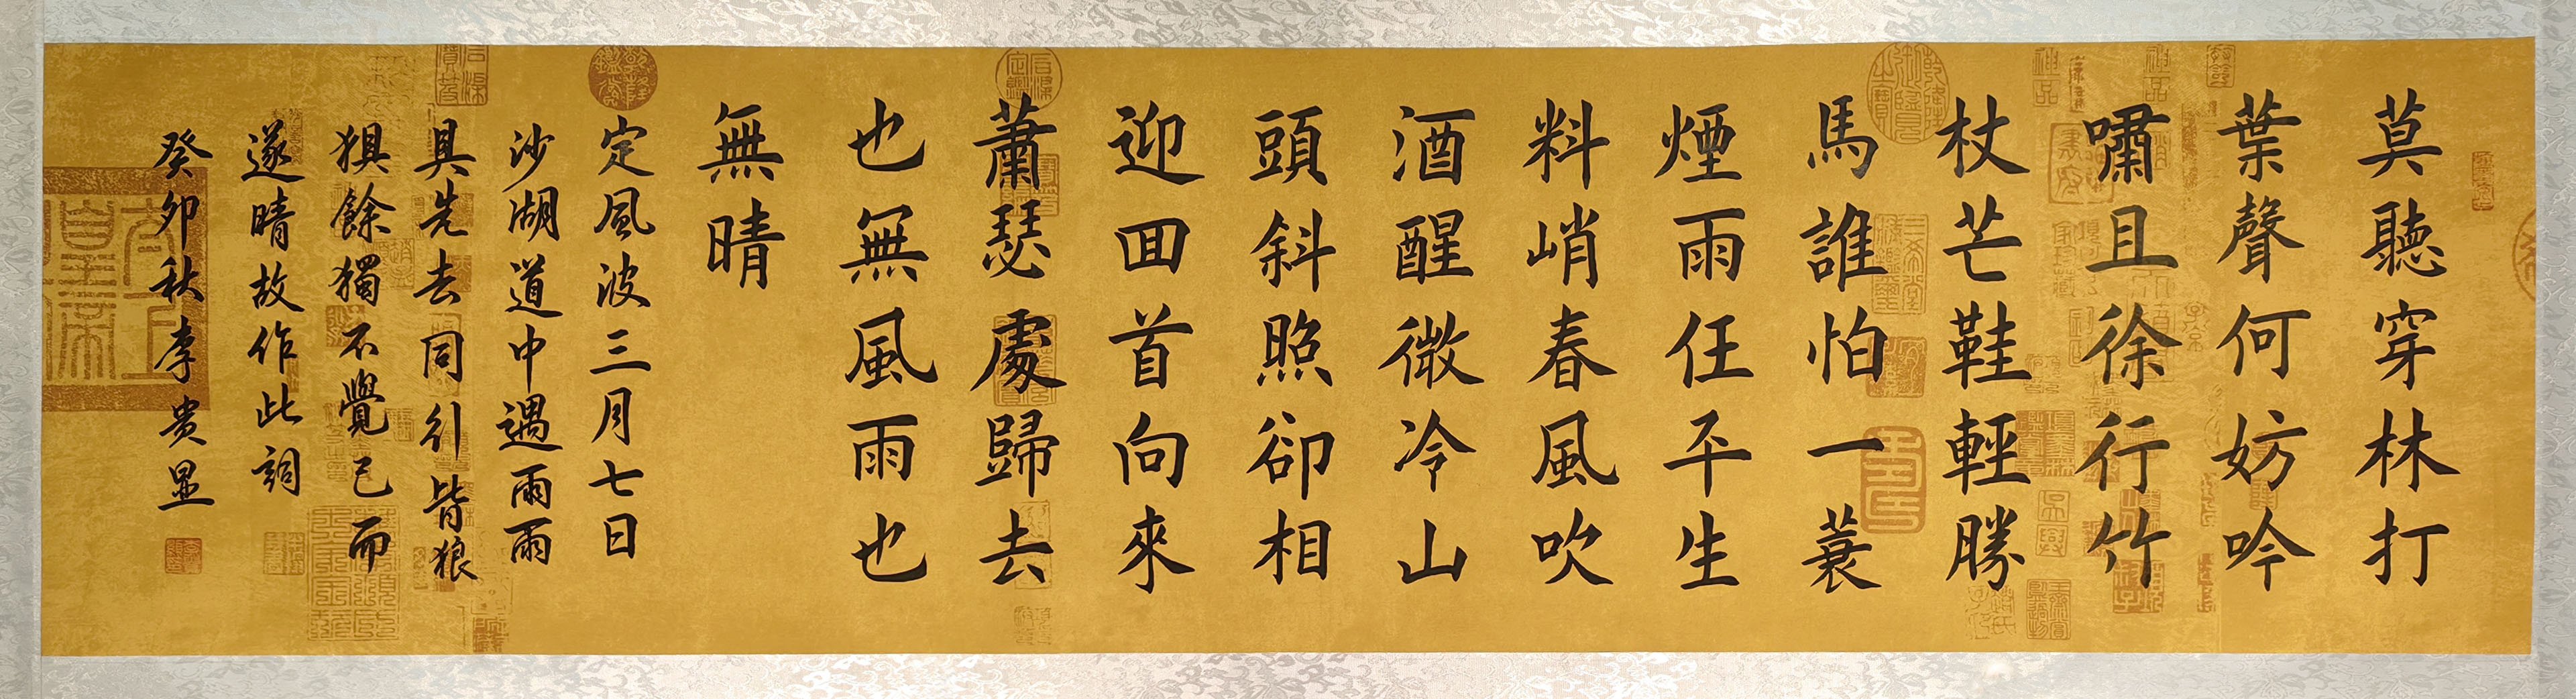 莫聽穿林打
葉聲何妨吟
嘯且徐行竹
杖芒鞋輕勝
馬誰怕一蓑
煙雨任平生
料峭春風吹
酒醒微冷山
頭斜照卻相
迎回首向來
蕭瑟處歸去
也無風雨也
無晴
定風波三月七日
沙湖道中遇雨雨
具先去同引皆狼
狽餘獨不覺已而
遂晴故作此詞
癸卯秋李贵显